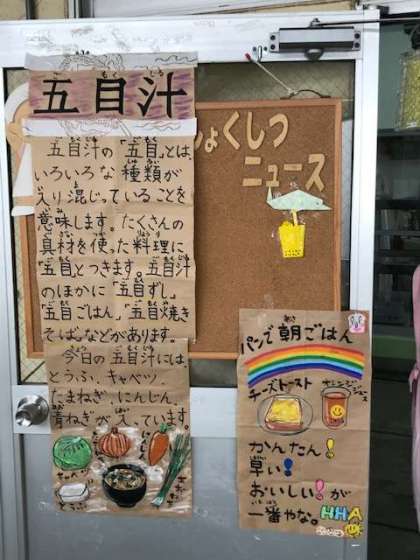 五目汁
五目汁の「五目」とは、
いろいろな種類が
入り混じっていることを
意味します。たくさんの
具材を使った料理に
「五目」とつきます。五目汁
のほかに「五目ずし」
「五目ごはん」「五目焼き
そば」などがあります。
今日の五目汁には、
とうふ、キャベツ、
たまねぎ、にんじん、
青ねぎが入っています。
ょくしつ
ニュース
パンで朝ごはん
チーズトースト
オレンジジュース
かんたん!
早い!
おいしい!が
一番やな。HHA